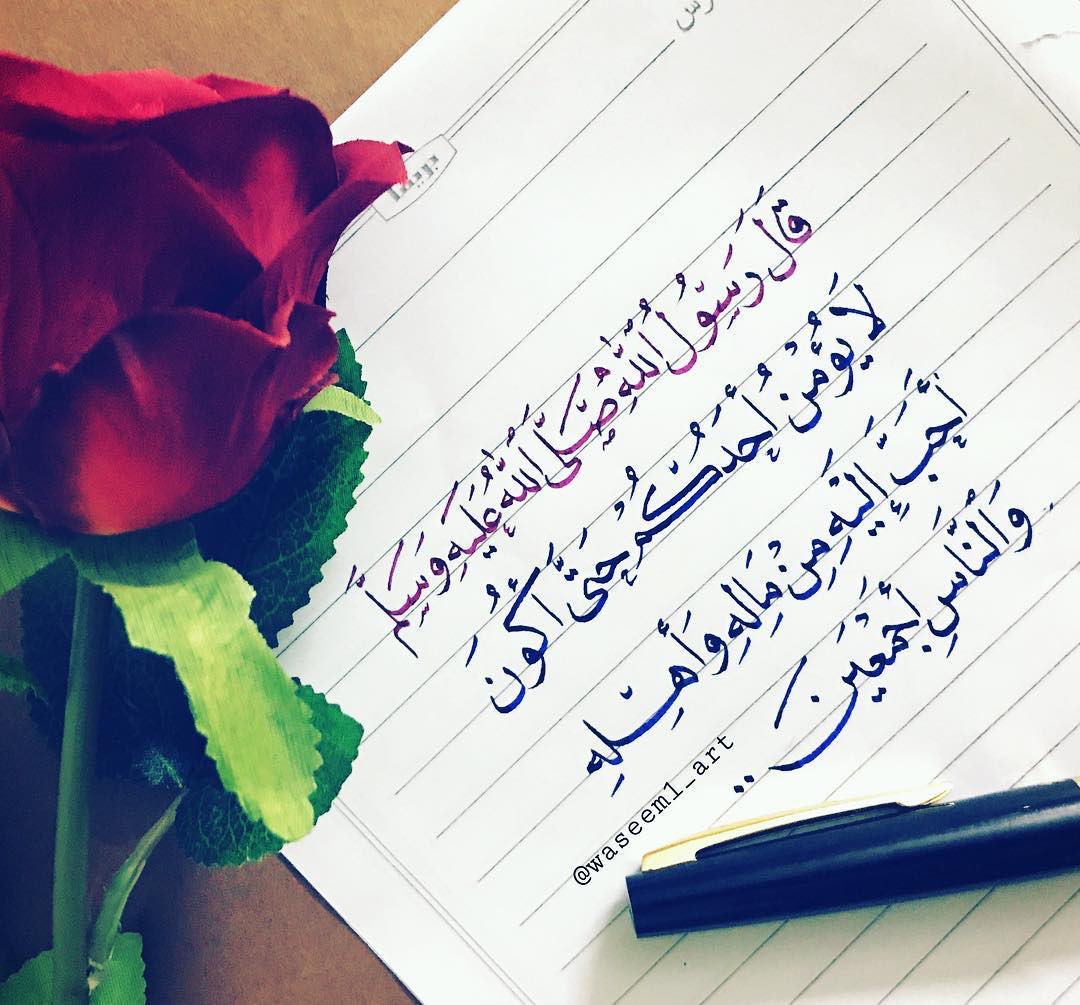 قَالَ رَسِوْلُ اللَّهِ صَلَّى اللَّهُ عَلَيْهِ وَسَلَّمَ
لَا يُؤْمِنُ أَحَدُكُمْ حَتَّى أَكُوْنَ
أَحَبَّ إِلَيْهِ مِنْ مَالِهِ وَأَهْلِهِ
وَالنَّاسِ أَجْمَعَيْنَ ..
@waseem1_art